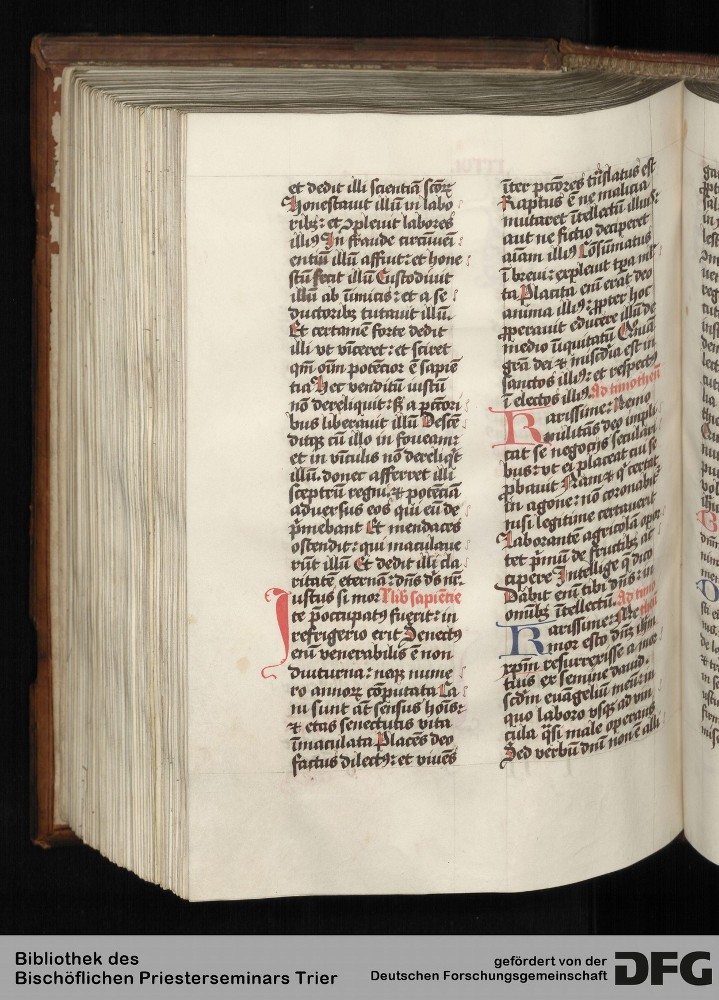 et dedit illi scientiã scõrꝝ
Honestauit illũ in labo
ribꝫ: et ↄpleuit labores
illiꝰ In fraude circũueĩ
entiũ illũ affuit: et hone
stũ fecit illũ Custodiuit
illũ ab ĩimicis: et a se
ductoribꝫ tutauit illũ.
Et certamẽ forte dedit
illi vt vĩceret: et sciret
qm̃ oĩm potẽcior ẽ sapiẽ
tia Hec venditũ iustũ
nõ dereliquit: sꝫ a pctõri
bus liberauit illũ Descẽ
ditqꝫ cũ illo in foueam:
et in vĩculis nõ dereliqͥt
illũ. donec afferret illi
sceptrũ regni. ⁊ potẽciã
aduersus eos qui eũ de
p̃mebant Et mendaces
ostendit: qui maculaue
rũt illũ Et dedit illi cla
ritatẽ eternã: dñs dʼs nr̃.
Iustus si mor T lib̃ sapiẽtie
te p̃occupatꝰ fuerit: in
refrigerio erit Senectꝰ
eñi venerabilis ẽ non
diuturna: neqꝫ nume
ro annorꝝ cõputata Ca
ni sunt aũt sensus hoĩs:
⁊ etas senectutis vita
ĩmaculata Placẽs deo
factus dilectꝰ: et viuẽs
ĩter pctõres trãslatus est
Raptus ẽ ne malicia
mutaret ĩtellectũ illiuˢ:
aut ne fictio deciperet
aĩam illiꝰ Cõsũmatus
ĩ breui: expleuit tp̃a mĩ
ta Placita eñi erat deo
anima illiꝰ: ꝓpter hoc
ꝓperauit educere illũ de
medio ĩiquitatũ Qm̃
gr̃a dei ⁊ misc̃dia est in
sanctos illiꝰ: et respectꝰ
ĩ electos illiꝰ. Ad timotheũ
Karissime: Nemo
militãs deo impli
cat se negocijs seculari
bus: vt ei placeat cui se
ꝓbauit Nam ⁊ qͥ certat
in agone: nõ coronabitᷣ
nisi legitime certauerit
Laborantẽ agricolã opor
tet p̃mũ de fructibꝫ ac
cipere Intellige qͣ dico
Dabit eñi tibi dñs: in
omĩbꝫ ĩtellectũ. Ad timo
Karissime: Me theũ
mor esto dñꝫ ihm̃
xp̃m resurrexisse a mor
tuis ex semine dauid.
scd̃m euãgeliũ meũ: in
quo laboro vsqꝫ ad vin
cula q̃si male operans
Sed verbũ dñi non ẽ alli
Bibliothek des
Bischöflichen Priesterseminars Trier
gefördert von der
Deutschen Forschungsgemeinschaft
DFG